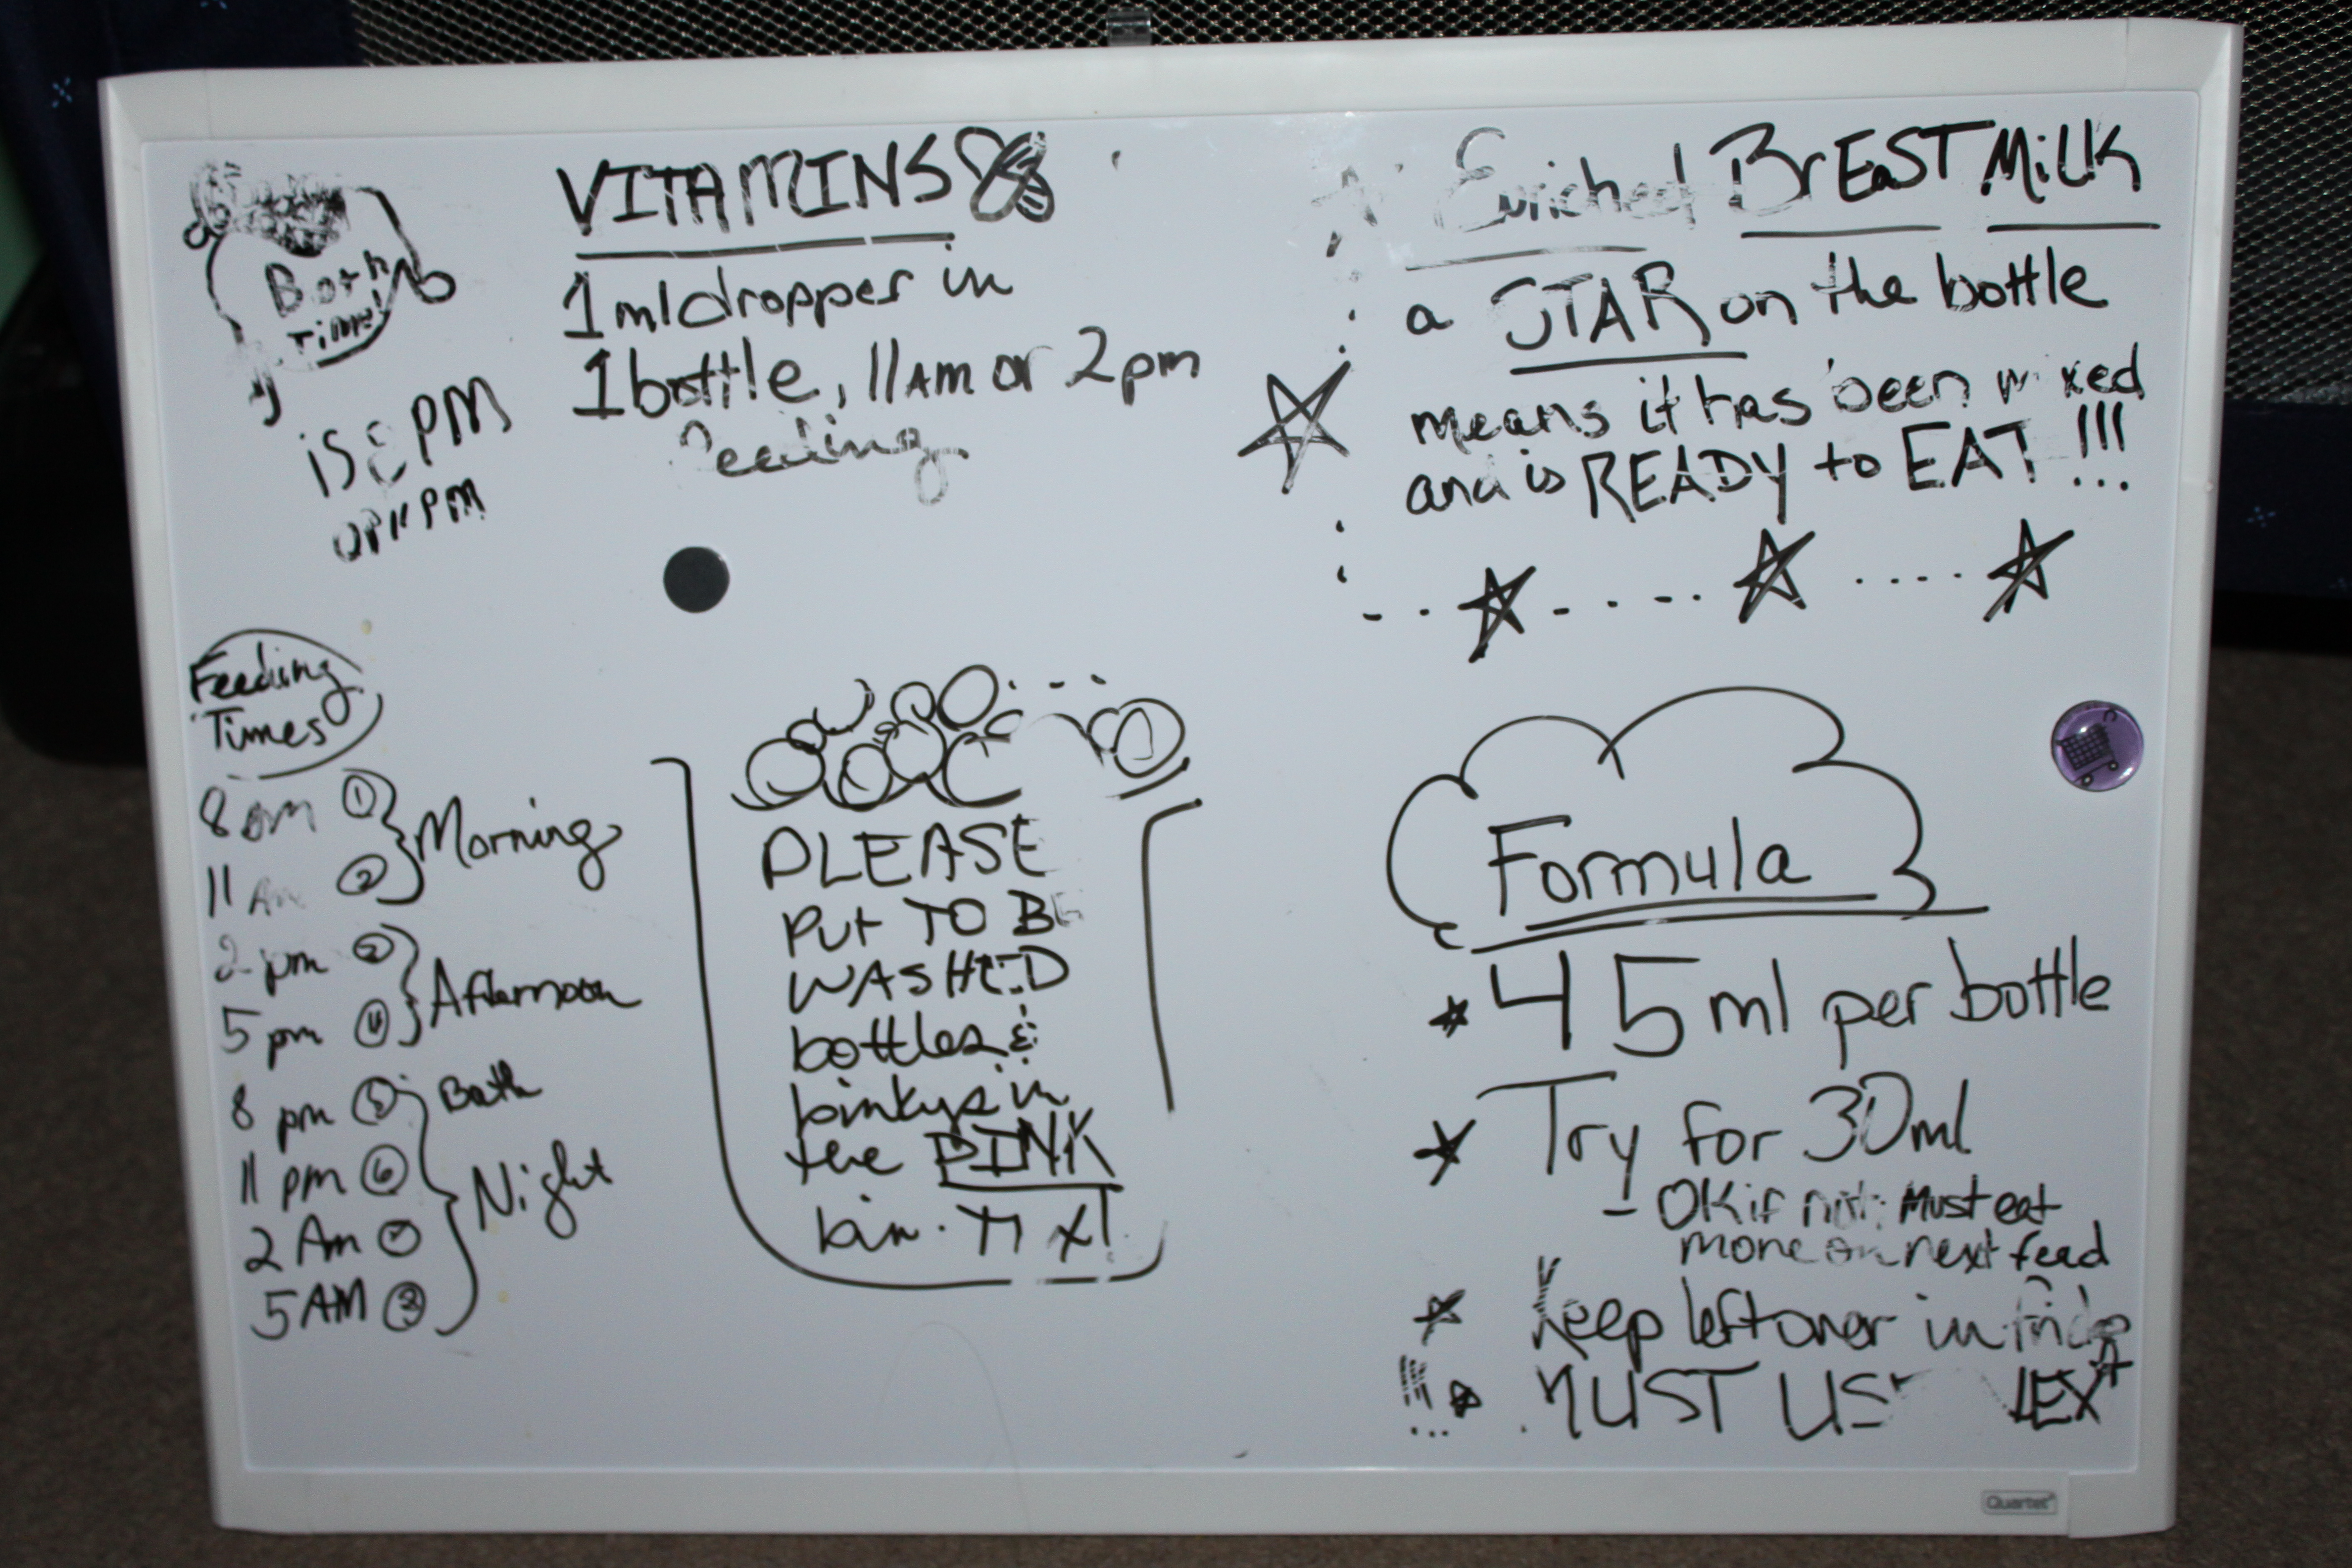 Bath
Time!
is 8 PM
or 11 PM
VITAMINS
1 ml dropper in
1 bottle, 11 AM or 2 pm
feeding
Enriched BrEaST MiLK
a STAR on the bottle
means it has been mixed
and is READY to EAT !!!
Feeding
Times
8 am 1
11 Am 2 Morning
2 pm
5 pm 4 Afternoon
8 pm 5 Bath
11 pm 6 Night
2 Am
5 AM
PLEASE
Put TO BE
WASHED
bottles &
binkys in
the PINK
bin.
Formula
45 ml per bottle
Try for 30ml
- OK if not; Must eat
more on next feed
Keep leftover in fridge
MUST USE NEXT
Quartet